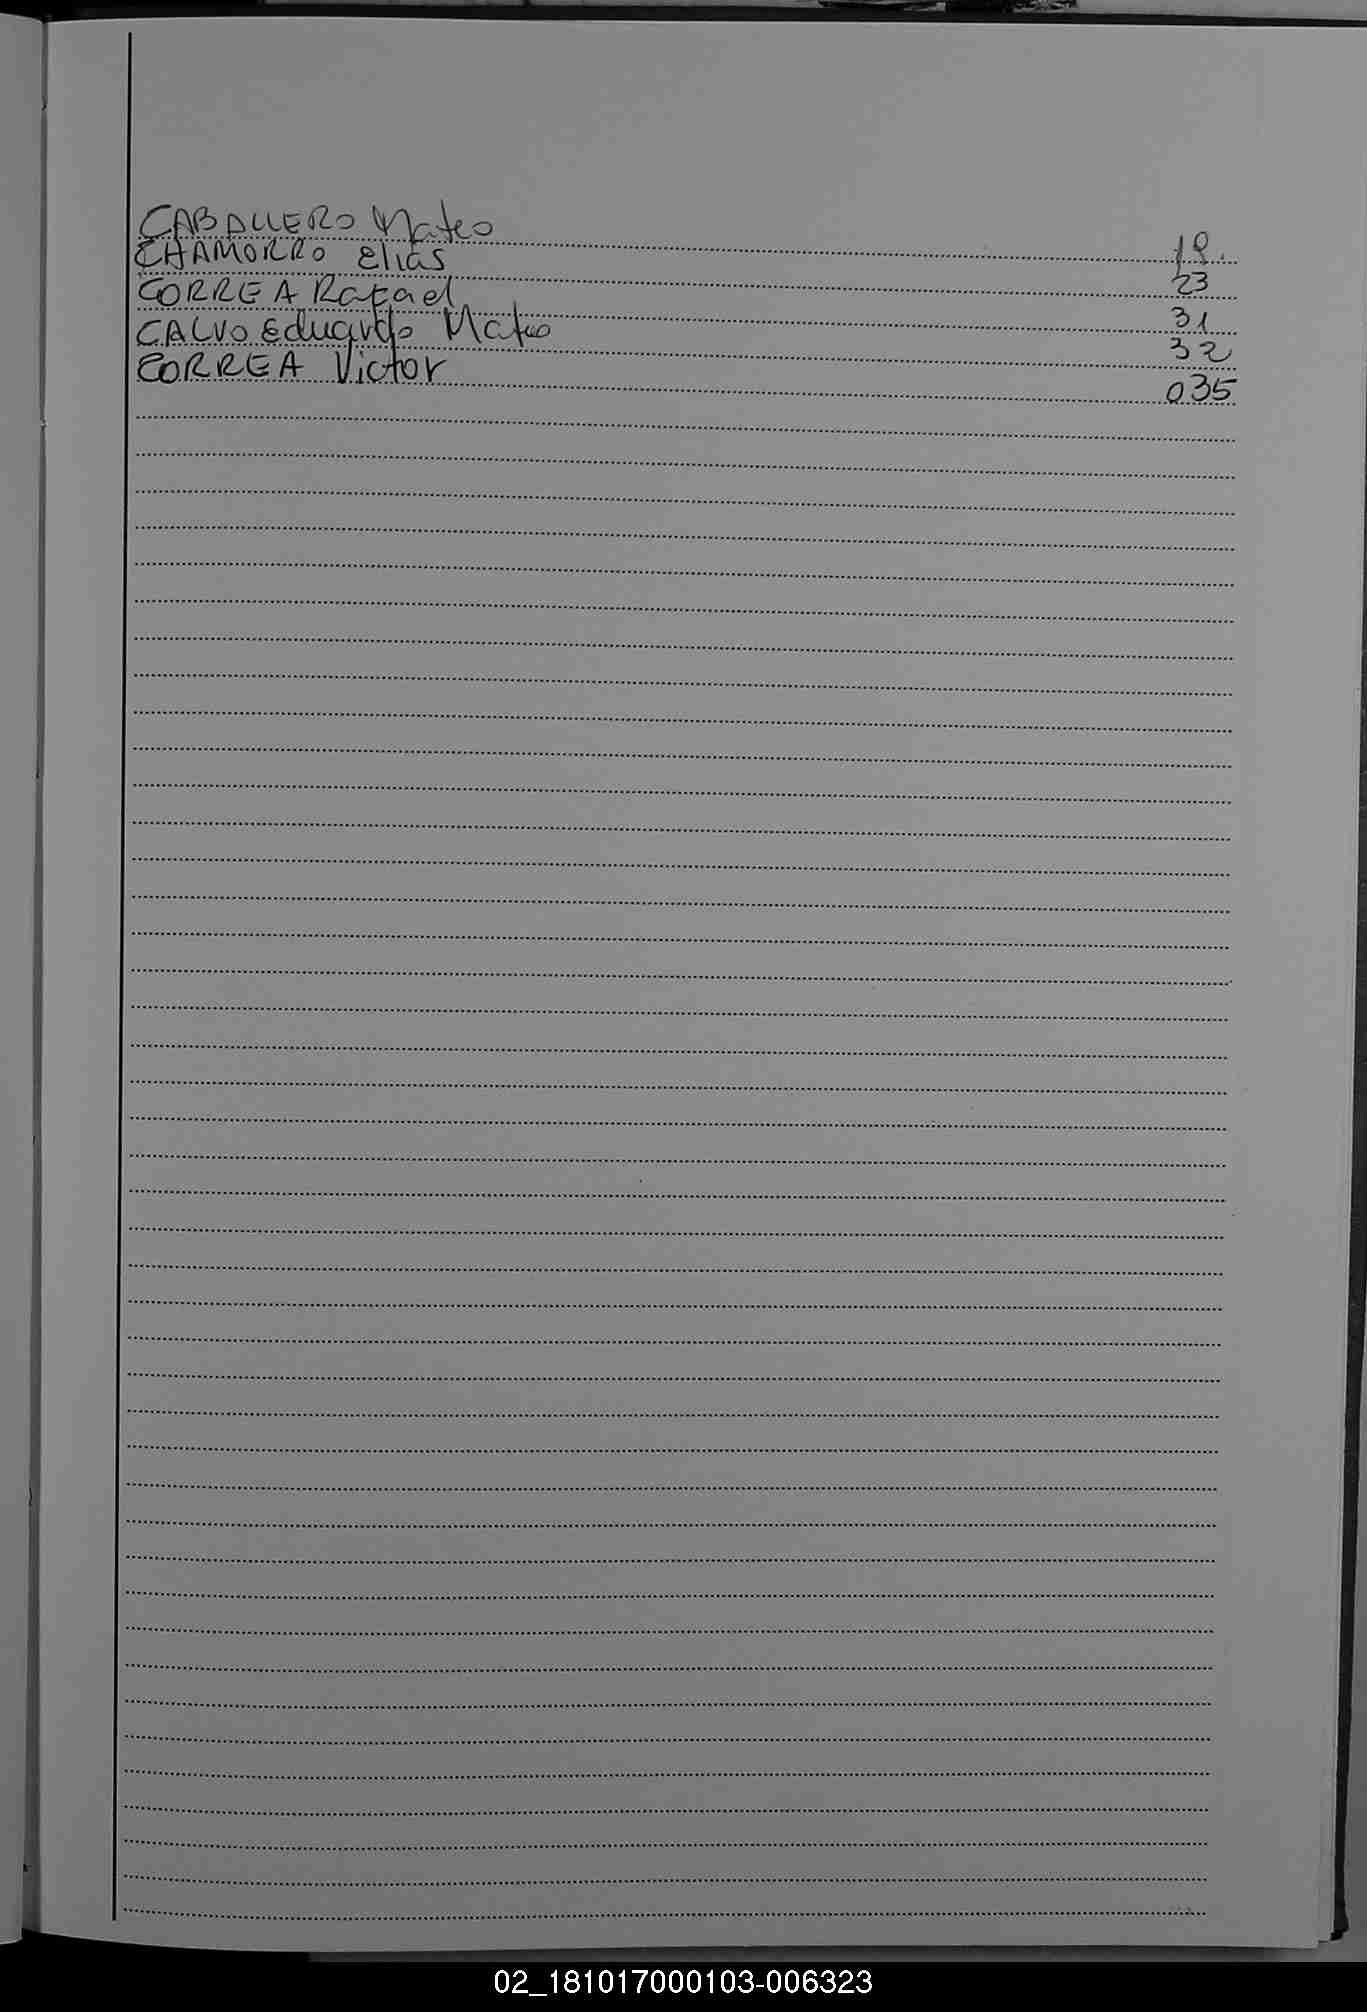 CABALLERO Mateo 19.
CHAMORRO Elias 23
CORREA Rafael 31
CALVO Eduardo Mateo 32
CORREA Victor 035
02_181017000103-006323